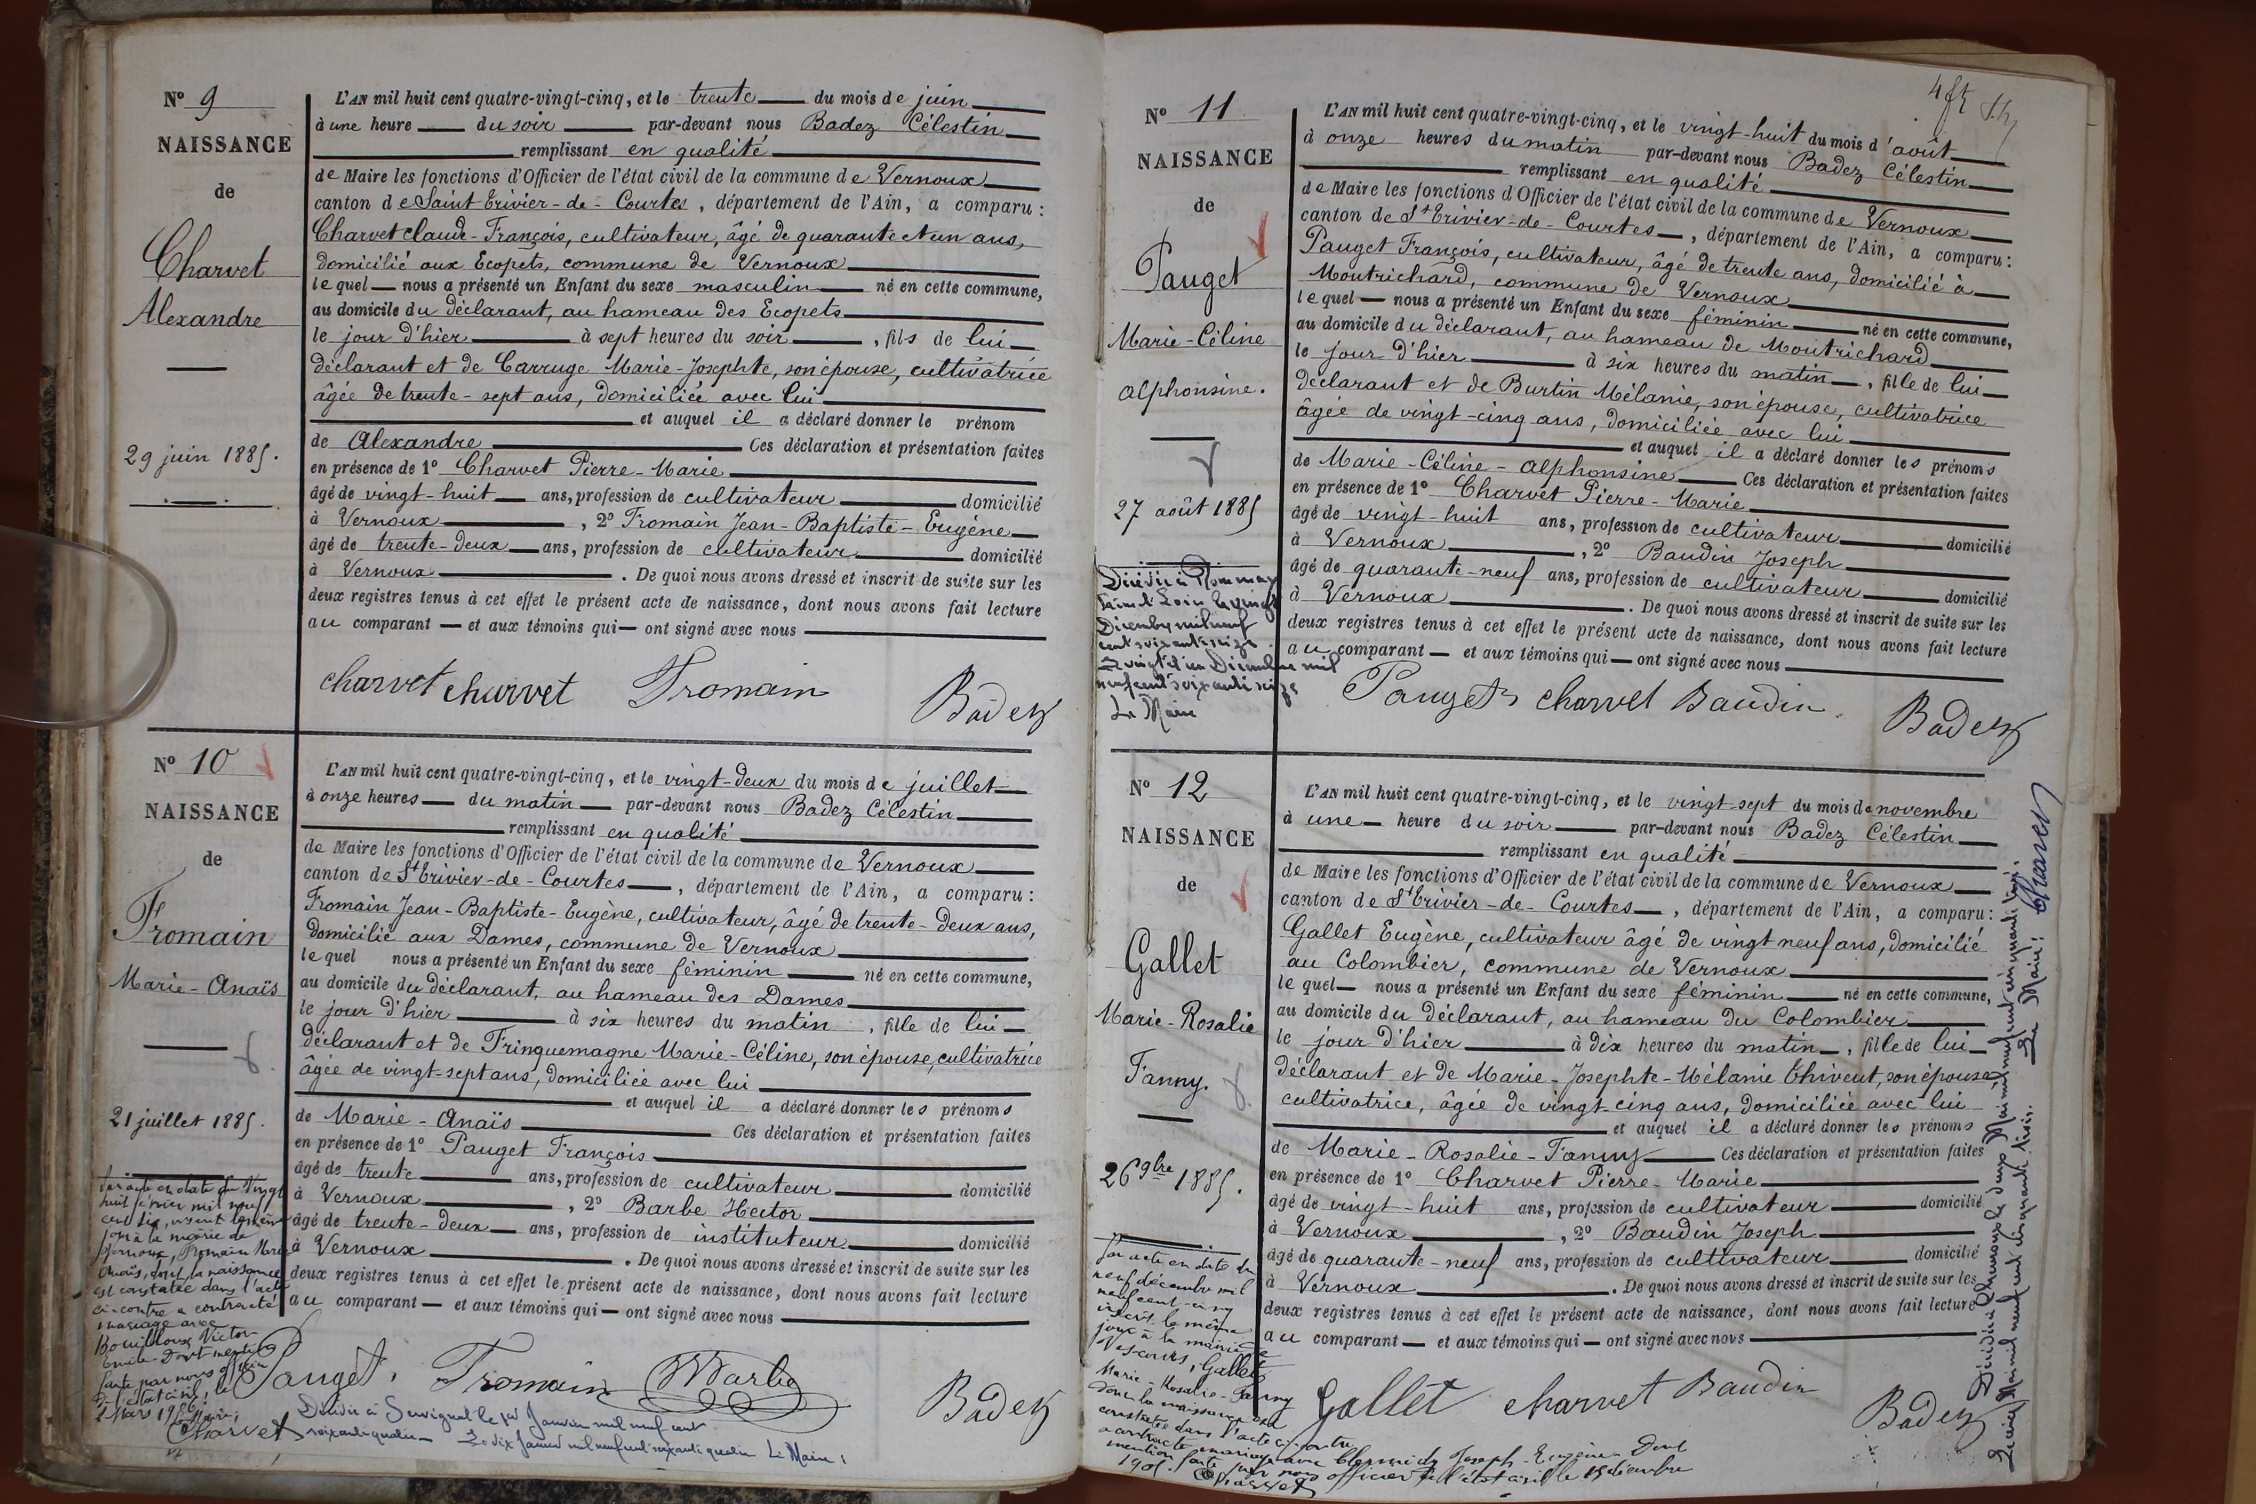 Nº 9
NAISSANCE
de
Charvet
Alexandre
29 juin 1885.
L'AN mil huit cent quatre-vingt-cinq, et le trente du mois de juin
à une heure du soir par-devant nous Badez Célestin
remplissant en qualité
de Maire les fonctions d'Officier de l'état civil de la commune de Vernoux
canton de Saint Trivier-de-Courtes, département de l'Ain, a comparu :
Charvet Claude-François, cultivateur, âgé de quarante et un ans,
domicilié aux Ecopets, commune de Vernoux
lequel nous a présenté un Enfant du sexe masculin né en cette commune,
au domicile du déclarant, au hameau des Ecopets
le jour d'hier à sept heures du soir, fils de lui
déclarant et de Carruge Marie-Josephte, son épouse, cultivatrice
âgée de trente-sept ans, domiciliée avec lui
et auquel il a déclaré donner le prénom
de Alexandre Ces déclaration et présentation faites
en présence de 1º Charvet Pierre-Marie
âgé de vingt-huit ans, profession de cultivateur domicilié
à Vernoux, 2º Fromain Jean-Baptiste-Eugène
âgé de trente-deux ans, profession de cultivateur domicilié
à Vernoux. De quoi nous avons dressé et inscrit de suite sur les
deux registres tenus à cet effet le présent acte de naissance, dont nous avons fait lecture
au comparant et aux témoins qui ont signé avec nous
charvet charvet Fromain Badez
Nº 10
NAISSANCE
de
Fromain
Marie-Anaïs
21 juillet 1885.
Par acte en date du vingt
huit février mil neuf
cent six, inscrit le même
jour à la mairie de
Vernoux, Fromain Marie
Anaïs, dont la naissance
est constatée dans l'acte
ci-contre a contracté
mariage avec
Bouilloux Victor
Emile. Dont mention
faite par nous officier
de l'état civil, le
2 Mars 1906.
Le Maire,
Charvet
L'AN mil huit cent quatre-vingt-cinq, et le vingt-deux du mois de juillet
à onze heures du matin par-devant nous Badez Célestin
remplissant en qualité
de Maire les fonctions d'Officier de l'état civil de la commune de Vernoux
canton de St Trivier-de-Courtes, département de l'Ain, a comparu :
Fromain Jean-Baptiste-Eugène, cultivateur, âgé de trente-deux ans,
domicilié aux Dames, commune de Vernoux
lequel nous a présenté un Enfant du sexe féminin né en cette commune,
au domicile du déclarant, au hameau des Dames
le jour d'hier à six heures du matin, fille de lui
déclarant et de Fringuemagne Marie-Céline, son épouse, cultivatrice
âgée de vingt-sept ans, domiciliée avec lui
et auquel il a déclaré donner les prénoms
de Marie-Anaïs Ces déclaration et présentation faites
en présence de 1º Pauget François
âgé de trente ans, profession de cultivateur domicilié
à Vernoux, 2º Barbe Hector
âgé de trente-deux ans, profession de instituteur domicilié
à Vernoux. De quoi nous avons dressé et inscrit de suite sur les
deux registres tenus à cet effet le présent acte de naissance, dont nous avons fait lecture
au comparant et aux témoins qui ont signé avec nous
Pauget. Fromain HBarbe Badez
Décédée à Servignat le Janvier mil neuf cent
soixante quatre Le dix Janvier mil neuf cent soixante quatre Le Maire :
Nº 11
NAISSANCE
de
Pauget
Marie-Céline
Alphonsine.
27 août 1885
Décédée à Romenay
Saône et Loire le vingt
Décembre mil neuf
cent soixante seize
Le vingt et un Décembre mil
neuf cent soixante seize
Le Maire
L'AN mil huit cent quatre-vingt-cinq, et le vingt-huit du mois d'août
à onze heures du matin par-devant nous Badez Célestin
remplissant en qualité
de Maire les fonctions d'Officier de l'état civil de la commune de Vernoux
canton de St Trivier-de-Courtes, département de l'Ain, a comparu :
Pauget François, cultivateur, âgé de trente ans, domicilié à
Montrichard, commune de Vernoux
lequel nous a présenté un Enfant du sexe féminin né en cette commune,
au domicile du déclarant, au hameau de Montrichard
le jour d'hier à six heures du matin, fille de lui
déclarant et de Burtin Mélanie, son épouse, cultivatrice
âgée de vingt-cinq ans, domiciliée avec lui
et auquel il a déclaré donner les prénoms
de Marie-Céline-Alphonsine Ces déclaration et présentation faites
en présence de 1º Charvet Pierre-Marie
âgé de vingt-huit ans, profession de cultivateur domicilié
à Vernoux, 2º Baudin Joseph
âgé de quarante-neuf ans, profession de cultivateur domicilié
à Vernoux. De quoi nous avons dressé et inscrit de suite sur les
deux registres tenus à cet effet le présent acte de naissance, dont nous avons fait lecture
au comparant et aux témoins qui ont signé avec nous
Pauget charvet Baudin Badez
Nº 12
NAISSANCE
de
Gallet
Marie-Rosalie
Fanny.
26 9bre 1885.
Par acte en date du
neuf décembre mil
neuf cent-cinq
inscrit le même
jour à la mairie de
Vescours, Gallet
Marie-Rosalie-Fanny
dont la naissance est
constatée dans l'acte ci-contre
a contracté mariage avec Joseph-Eugène. Dont
mention faite par nous officier de l'état civil le 15 décembre
1905. Charvet
L'AN mil huit cent quatre-vingt-cinq, et le vingt-sept du mois de novembre
à une heure du soir par-devant nous Badez Célestin
remplissant en qualité
de Maire les fonctions d'Officier de l'état civil de la commune de Vernoux
canton de St Trivier-de-Courtes, département de l'Ain, a comparu :
Gallet Eugène, cultivateur âgé de vingt neuf ans, domicilié
au Colombier, commune de Vernoux
lequel nous a présenté un Enfant du sexe féminin né en cette commune,
au domicile du déclarant, au hameau du Colombier
le jour d'hier à dix heures du matin, fille de lui
déclarant et de Marie-Josephte-Mélanie Thivent, son épouse
cultivatrice, âgée de vingt-cinq ans, domiciliée avec lui
et auquel il a déclaré donner les prénoms
de Marie-Rosalie-Fanny Ces déclaration et présentation faites
en présence de 1º Charvet Pierre-Marie
âgé de vingt-huit ans, profession de cultivateur domicilié
à Vernoux, 2º Baudin Joseph
âgé de quarante-neuf ans, profession de cultivateur domicilié
à Vernoux. De quoi nous avons dressé et inscrit de suite sur les
deux registres tenus à cet effet le présent acte de naissance, dont nous avons fait lecture
au comparant et aux témoins qui ont signé avec nous
Gallet charvet Baudin Badez
Décédée à le deux Mai mil neuf cent cinquante
Mai mil neuf cent cinquante
Le Maire : Charvet